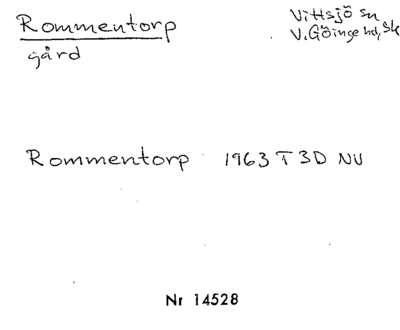 Rommentorp
gård
Vittsjö sn
V. Göinge hd, Sk
Rommentorp 1963 T 3D NV
Nr 14528